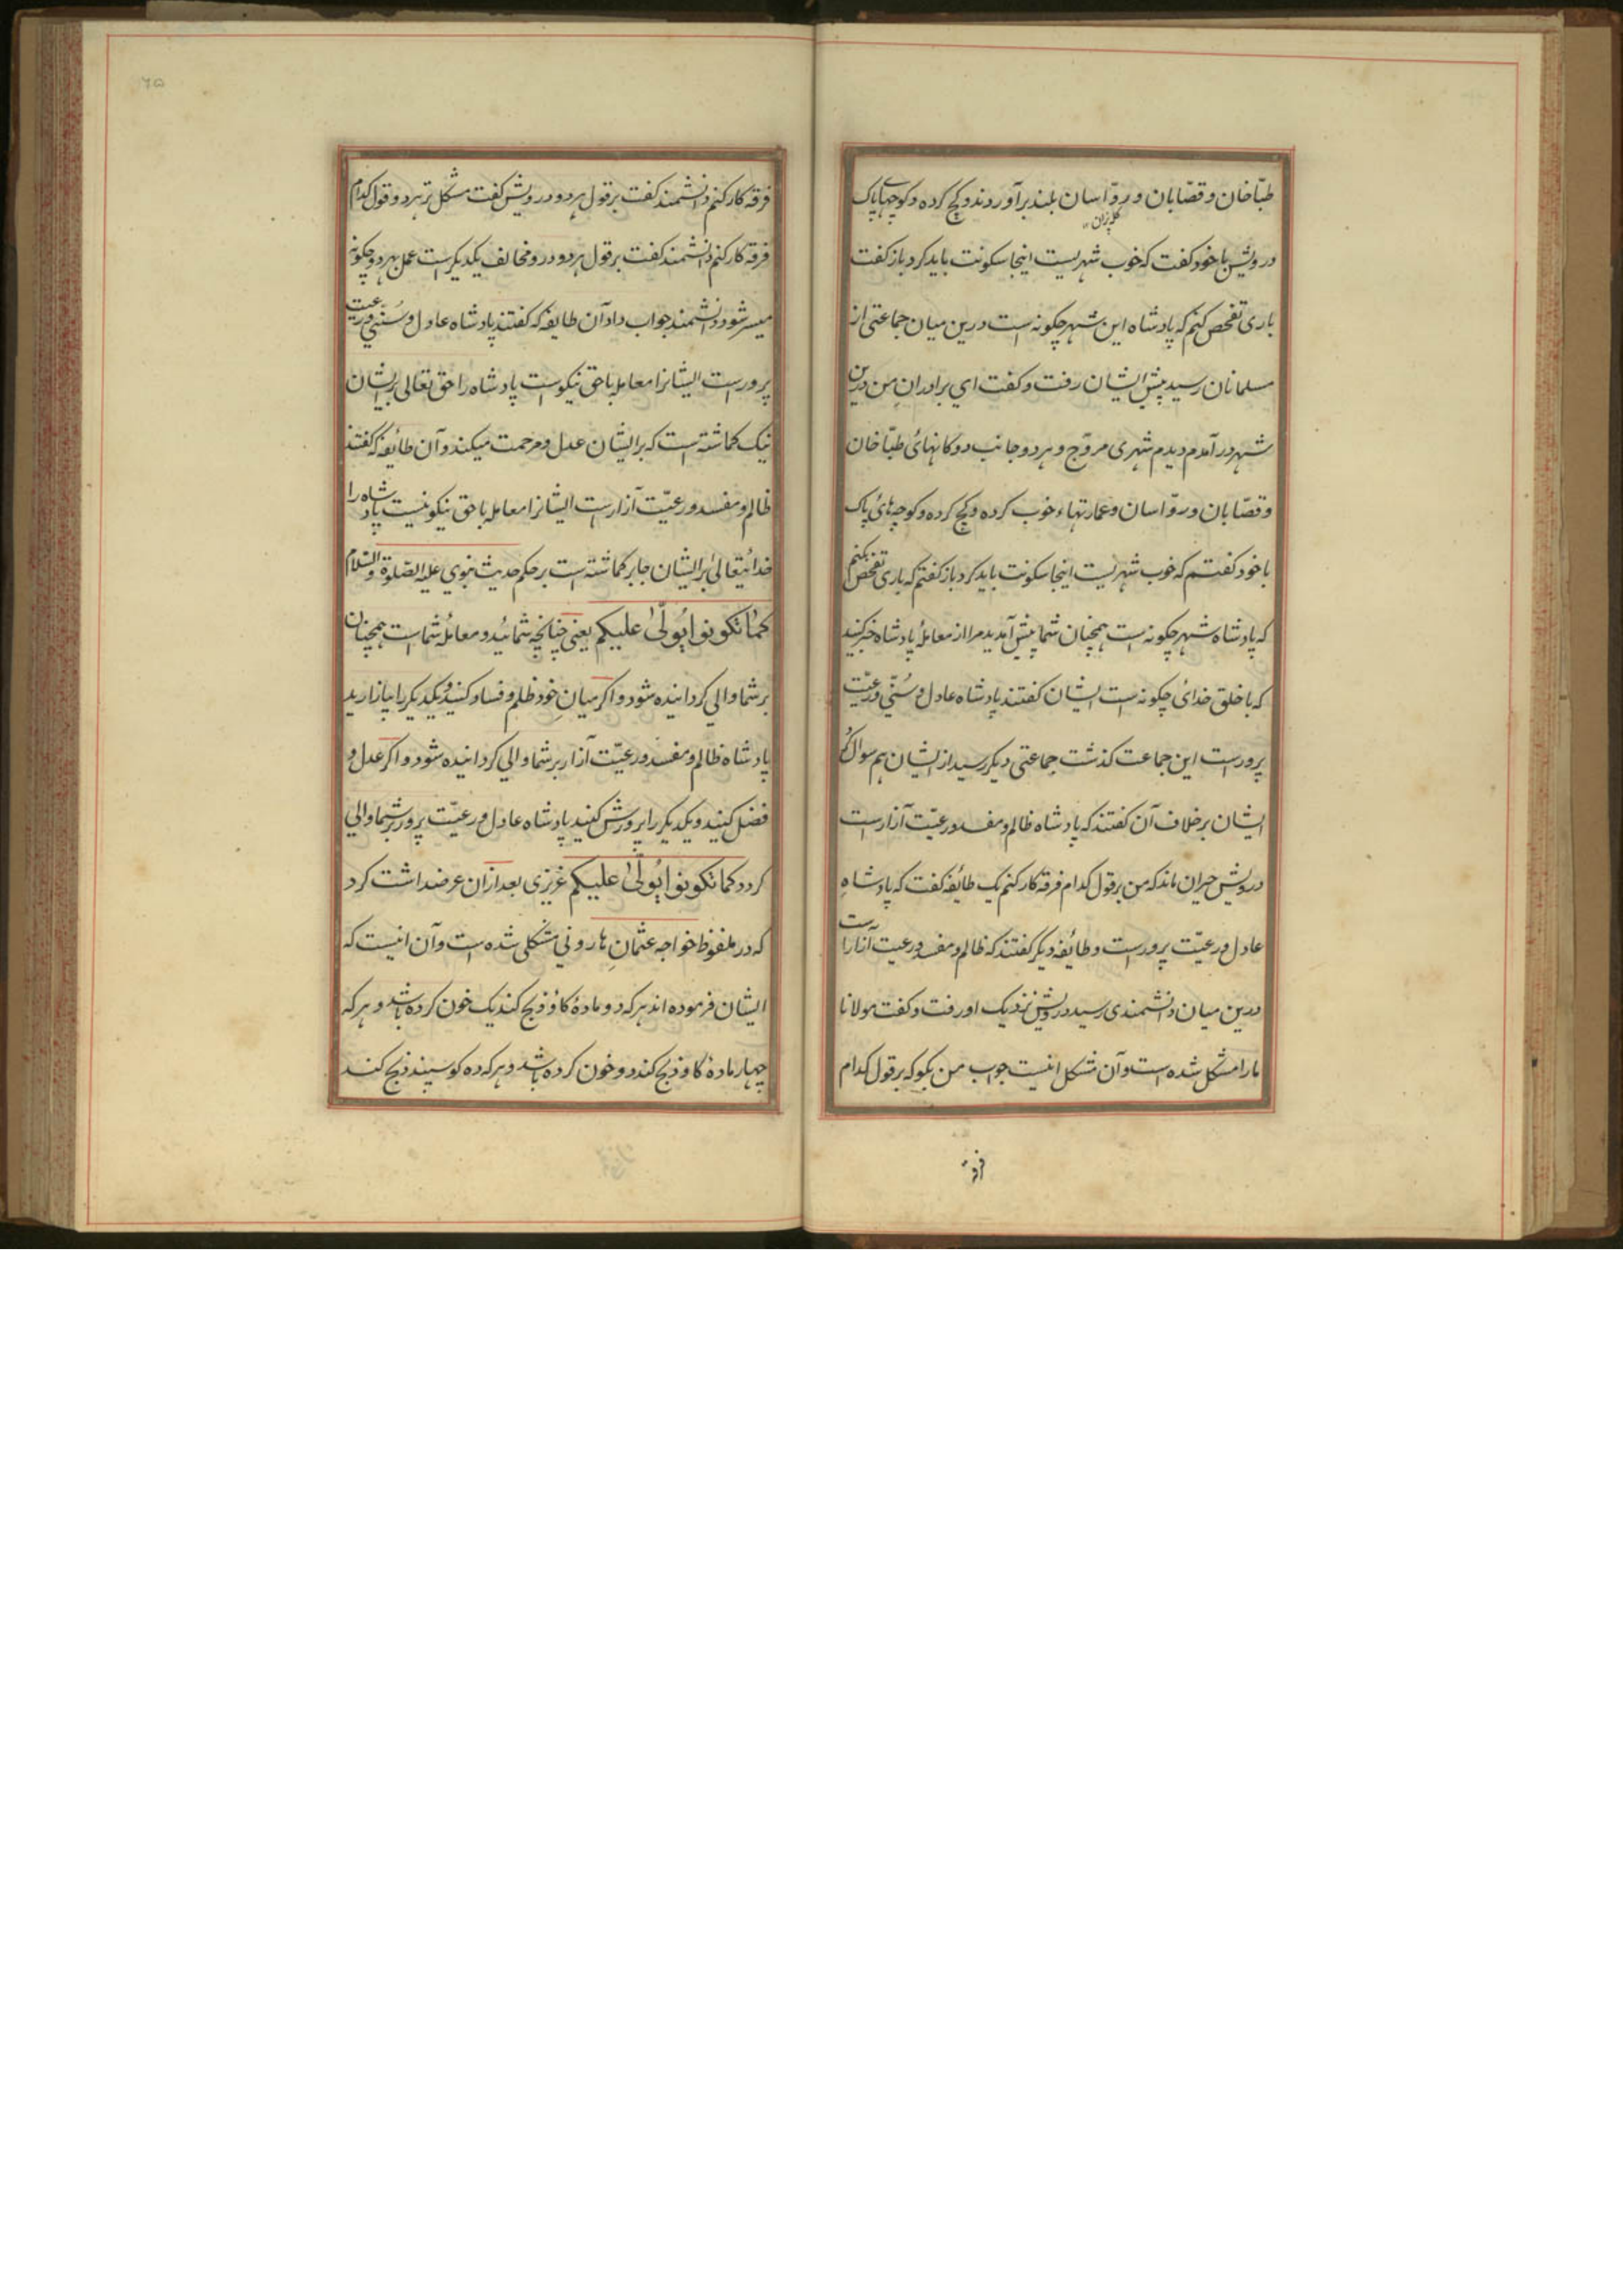 طبّاخان و قصّابان و روّاسان بلند برآوردند و گچ کرده و کوچهاے پاک
کله پزان
درویش با خود کفت که خوب شهریست اینجا سکونت باید کرد باز کفت
باری تفحص کنم که پادشاه این شهر چکونه است درین میان جماعتی از
مسلمانان رسید پیش ایشان رفت و کفت ای برادران من درین
شهر درآمدم دیدم شهری مروّج و هر دو جانب دوکانهائ طبّاخان
و قصّابان و روّاسان و عمارتهاء خوب کرده و کچ کرده و کوچه هائ پاک
با خود کفتم که خوب شهریست اینجا سکونت باید کرد باز کفتم که باری تفحص بکنم
که پادشاه شهر چکونه است همچنان شما پیش آمدید مرا از معاملهٔ پادشاه خبر کنید
که با خلق خدائ چکونه است ایشان کفتند پادشاه عادل و سُنّی و رعیّت
پرورست این جماعت کذشت جماعتی دیکر رسید از ایشان هم سوال کرد
ایشان برخلاف آن کفتند که پادشاه ظالم و مفسد و رعیّت آزارست
درویش حیران ماند که من بر قول کدام فرقه کار کنم یک طائفه کفت که پادشاهِ
عادل و رعیّت پرورست و طائفه دیکر کفتند که ظالم و مفسد و رعیت آزارست
درین میان دانشمندی رسید درویش نزدیک او رفت و کفت مولانا
مارا مشکل شده است و آن مشکل اینست جواب من بکو که بر قول کدام
فرقه
٦٥
فرقه کار کنم دانشمند کفت بر قول هر دو درویش کفت مشکل تر هر دو قول کدام
فرقه کار کنم دانشمند کفت بر قول هر دو در و مخالف یکدیکرست عمل بهر دو چکونه
میسر شود دانشمند جواب داد آن طایفه که کفتند پادشاه عادل و سُنّی و رعیت
پرورست ایشانرا معامله با حق نیکوست پادشاه را حق تعالی بریشان
نیک کماشته است که بر ایشان عدل و مرحمت میکند و آن طائفه که کفتند
ظالم و مفسد و رعیّت آزارست ایشانرا معامله با حق نیکو نیست پادشاه را
خدائیتعالیٰ بر ایشان جابر کماشته است بر حکم حدیث نبوی علیه الصّلوٰة و السّلام
کمٰا تکونوا یُولّیٰ علیکم یعنی چنانچه شمائید و معاملهٔ شماست همچنان
بر شما والی کردانیده شود و اکر میانِ خود ظلم و فساد کنید و یکدیکر را بیازارید
پادشاه ظالم و مفسد و رعیّت آزار بر شما والی کردانیده شود و اکر عدل و
فضل کنید و یکدیکر را پرورش کنید پادشاه عادل و رعیّت پرور بر شما والی
کردد کما تکونوا یُولّیٰ علیکم عزیزی بعد ازان عرضداشت کرد
که در ملفوظ خواجه عثمانِ هارونی مشکلی شده است و آن اینست که
ایشان فرموده اند هرکه دو مادهٔ کاؤ ذبح کند یک خون کرده باشد و هرکه
چهار مادهٔ کاو ذبح کند دو خون کرده باشد و هرکه ده کوسپند ذبح کند